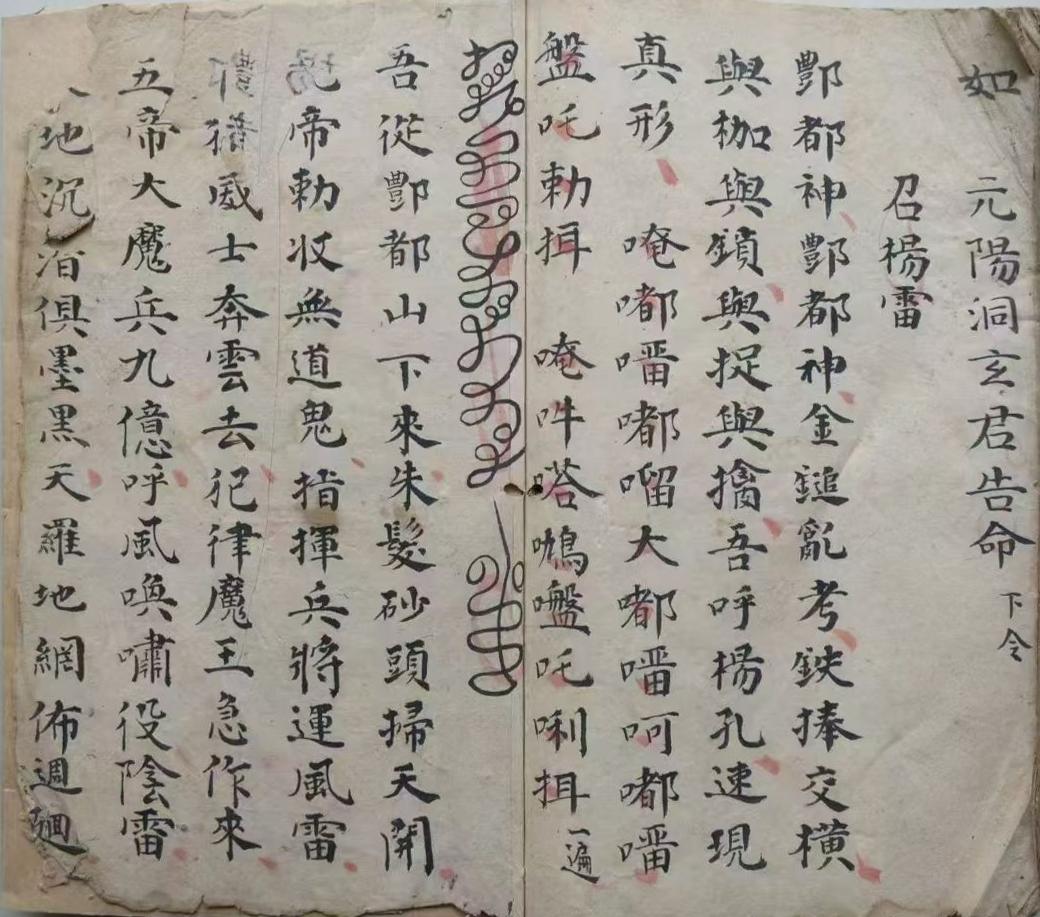 如
元陽洞玄君告命下令
召楊雷
酆都神酆都神金鎚亂考鈇捧交橫
與枷與鎖與捉與擒吾呼楊孔速現
真形 唵嘟噃嘟嚠大嘟噃呵嘟噃
盤吒勅揖 唵吽嗒鳩盤吒唎揖一遍
吾從酆都山下來朱髮砂頭掃天開
帝勅收無道鬼指揮兵將運風雷
威士奔雲去犯律魔王急作來
五帝大魔兵九億呼風喚嘯役陰雷
地沉俱墨黑天羅地網佈週廻